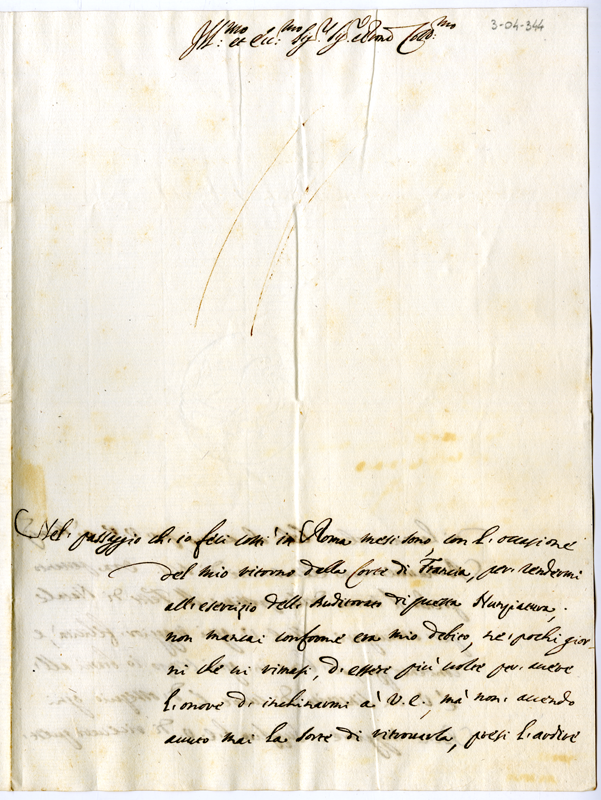 Ill.mo et Ecc.mo Sig.r Sig.r e Pron Coll.mo
3-04-344
Nel passaggio che io feci costì in Roma mesi sono, con l'occasione
del mio ritorno dalla Corte di Francia, per rendermi
all'esercizio dell'Auditorato di questa Nunziatura,
non mancai conforme era mio debito, ne' pochi gior-
ni che vi rimasi, d'essere più volte per avere
l'onore d'inchinarmi à V.E., mà non avendo
avuto mai la sorte di ritrovarla, presi l'ardire